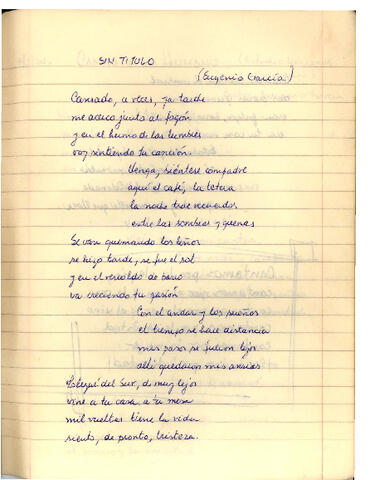 SIN TITULO
(Eugenio García)
Cansado, a veces, ya tarde
me acerco junto al fogón
y en el humo de las lumbres
voy sintiendo tu canción.
Venga, siéntese compadre
aquí el café, la tetera
la noche trae recuerdos
entre las sombras y quenas
Se van quemando los leños
se hizo tarde, se fue el sol
y en el rescoldo de
va creciendo tu pasión
Con el andar y los sueños
el tiempo se hace distancia
mis pasos se fueron lejos
allá quedaron mis ansias
del Sur, de muy lejos
vine a tu casa, a tu mesa
mil vueltas tiene la vida
siento, de pronto, tristeza.